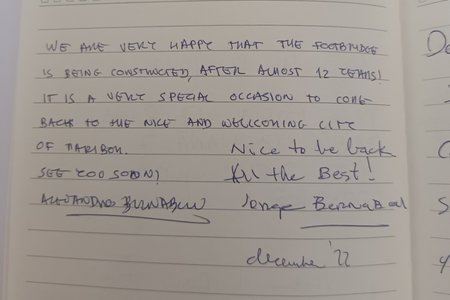 WE ARE VERY HAPPY THAT THE FOOTBRIDGE
IS BEING CONSTRUCTED, AFTER ALMOST 12 YEARS!
IT IS A VERY SPECIAL OCCASION TO COME
BACK TO THE NICE AND WELLCOMING CITY
OF MARIBOR.
SEE YOU SOON!
ALEJANDRO BERNABEU
Nice to be back
All the Best!
Jorge BERNABEU
december '22